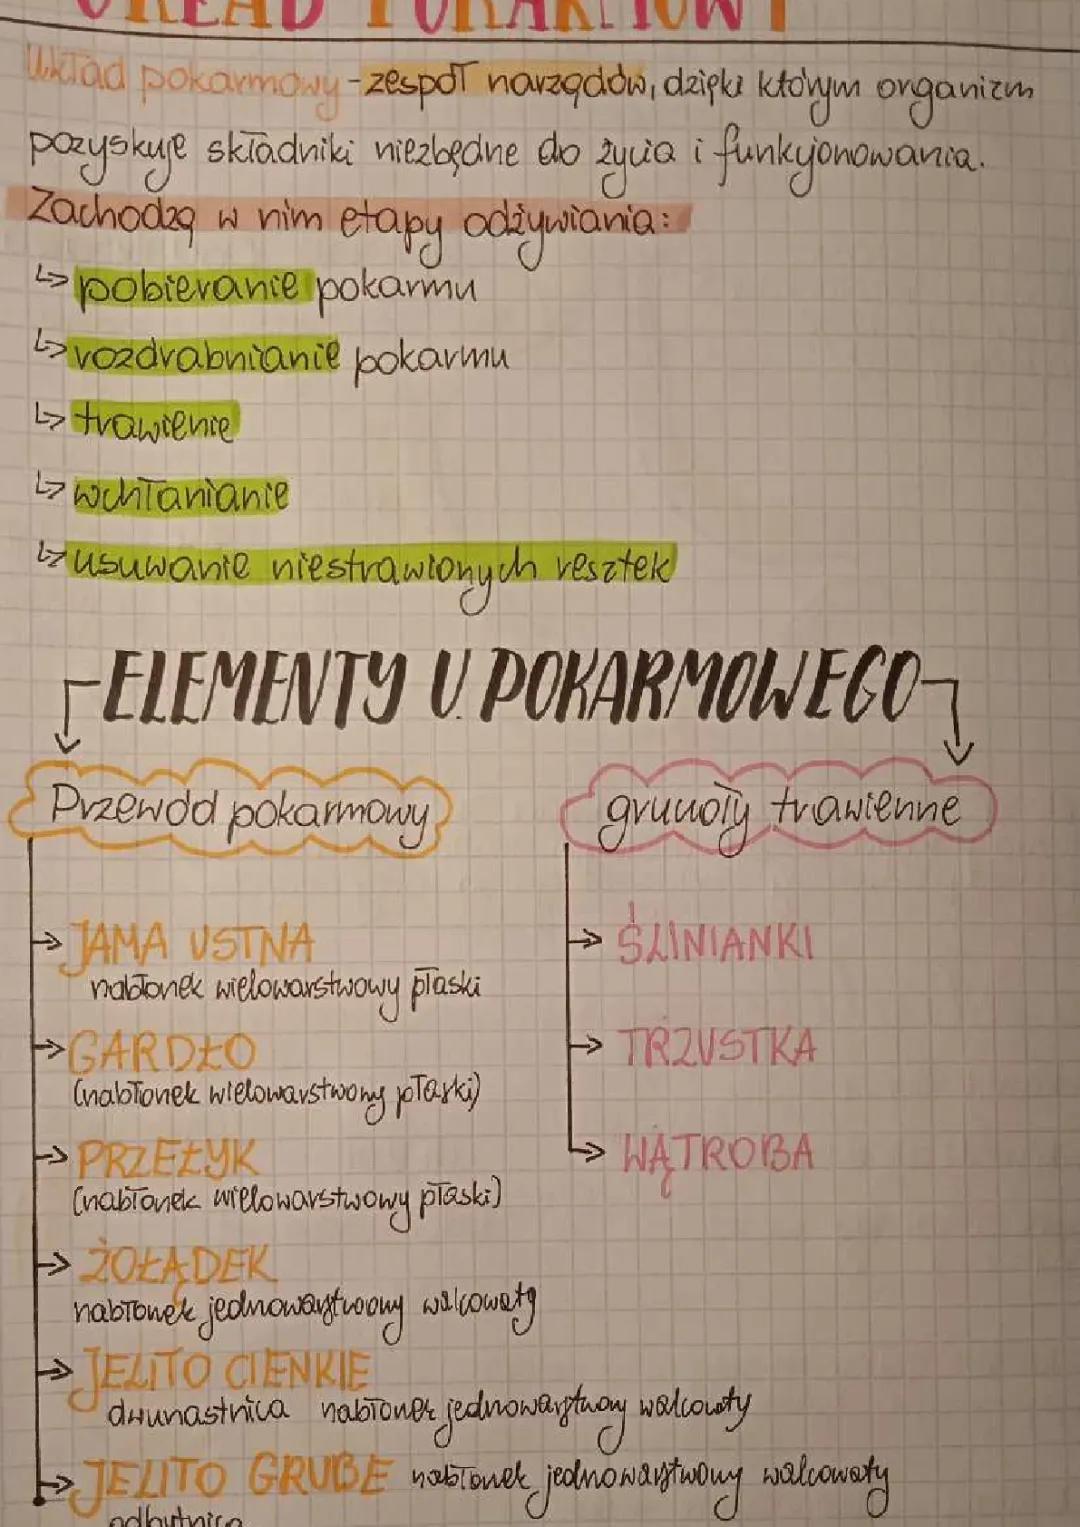 UKŁAD POKARMOWY
Układ pokarmowy - zespół narządów, dzięki którym organizm
pozyskuje składniki niezbędne do życia i funkcjonowania.
Zachodzą w nim etapy odżywiania:
↳ pobieranie pokarmu
↳ rozdrabnianie pokarmu
↳ trawienie
↳ wchłanianie
↳ usuwanie niestrawionych resztek
ELEMENTY U. POKARMOWEGO
Przewód pokarmowy
→ JAMA USTNA
nabłonek wielowarstwowy płaski
→ GARDŁO
(nabłonek wielowarstwowy płaski)
→ PRZEŁYK
(nabłonek wielowarstwowy płaski)
→ ŻOŁĄDEK
nabłonek jednowarstwowy walcowaty
→ JELITO CIENKIE
dwunastnica nabłonek jednowarstwowy walcowaty
→ JELITO GRUBE nabłonek jednowarstwowy walcowaty
odbytnica
gruczoły trawienne
→ ŚLINIANKI
→ TRZUSTKA
→ WĄTROBA